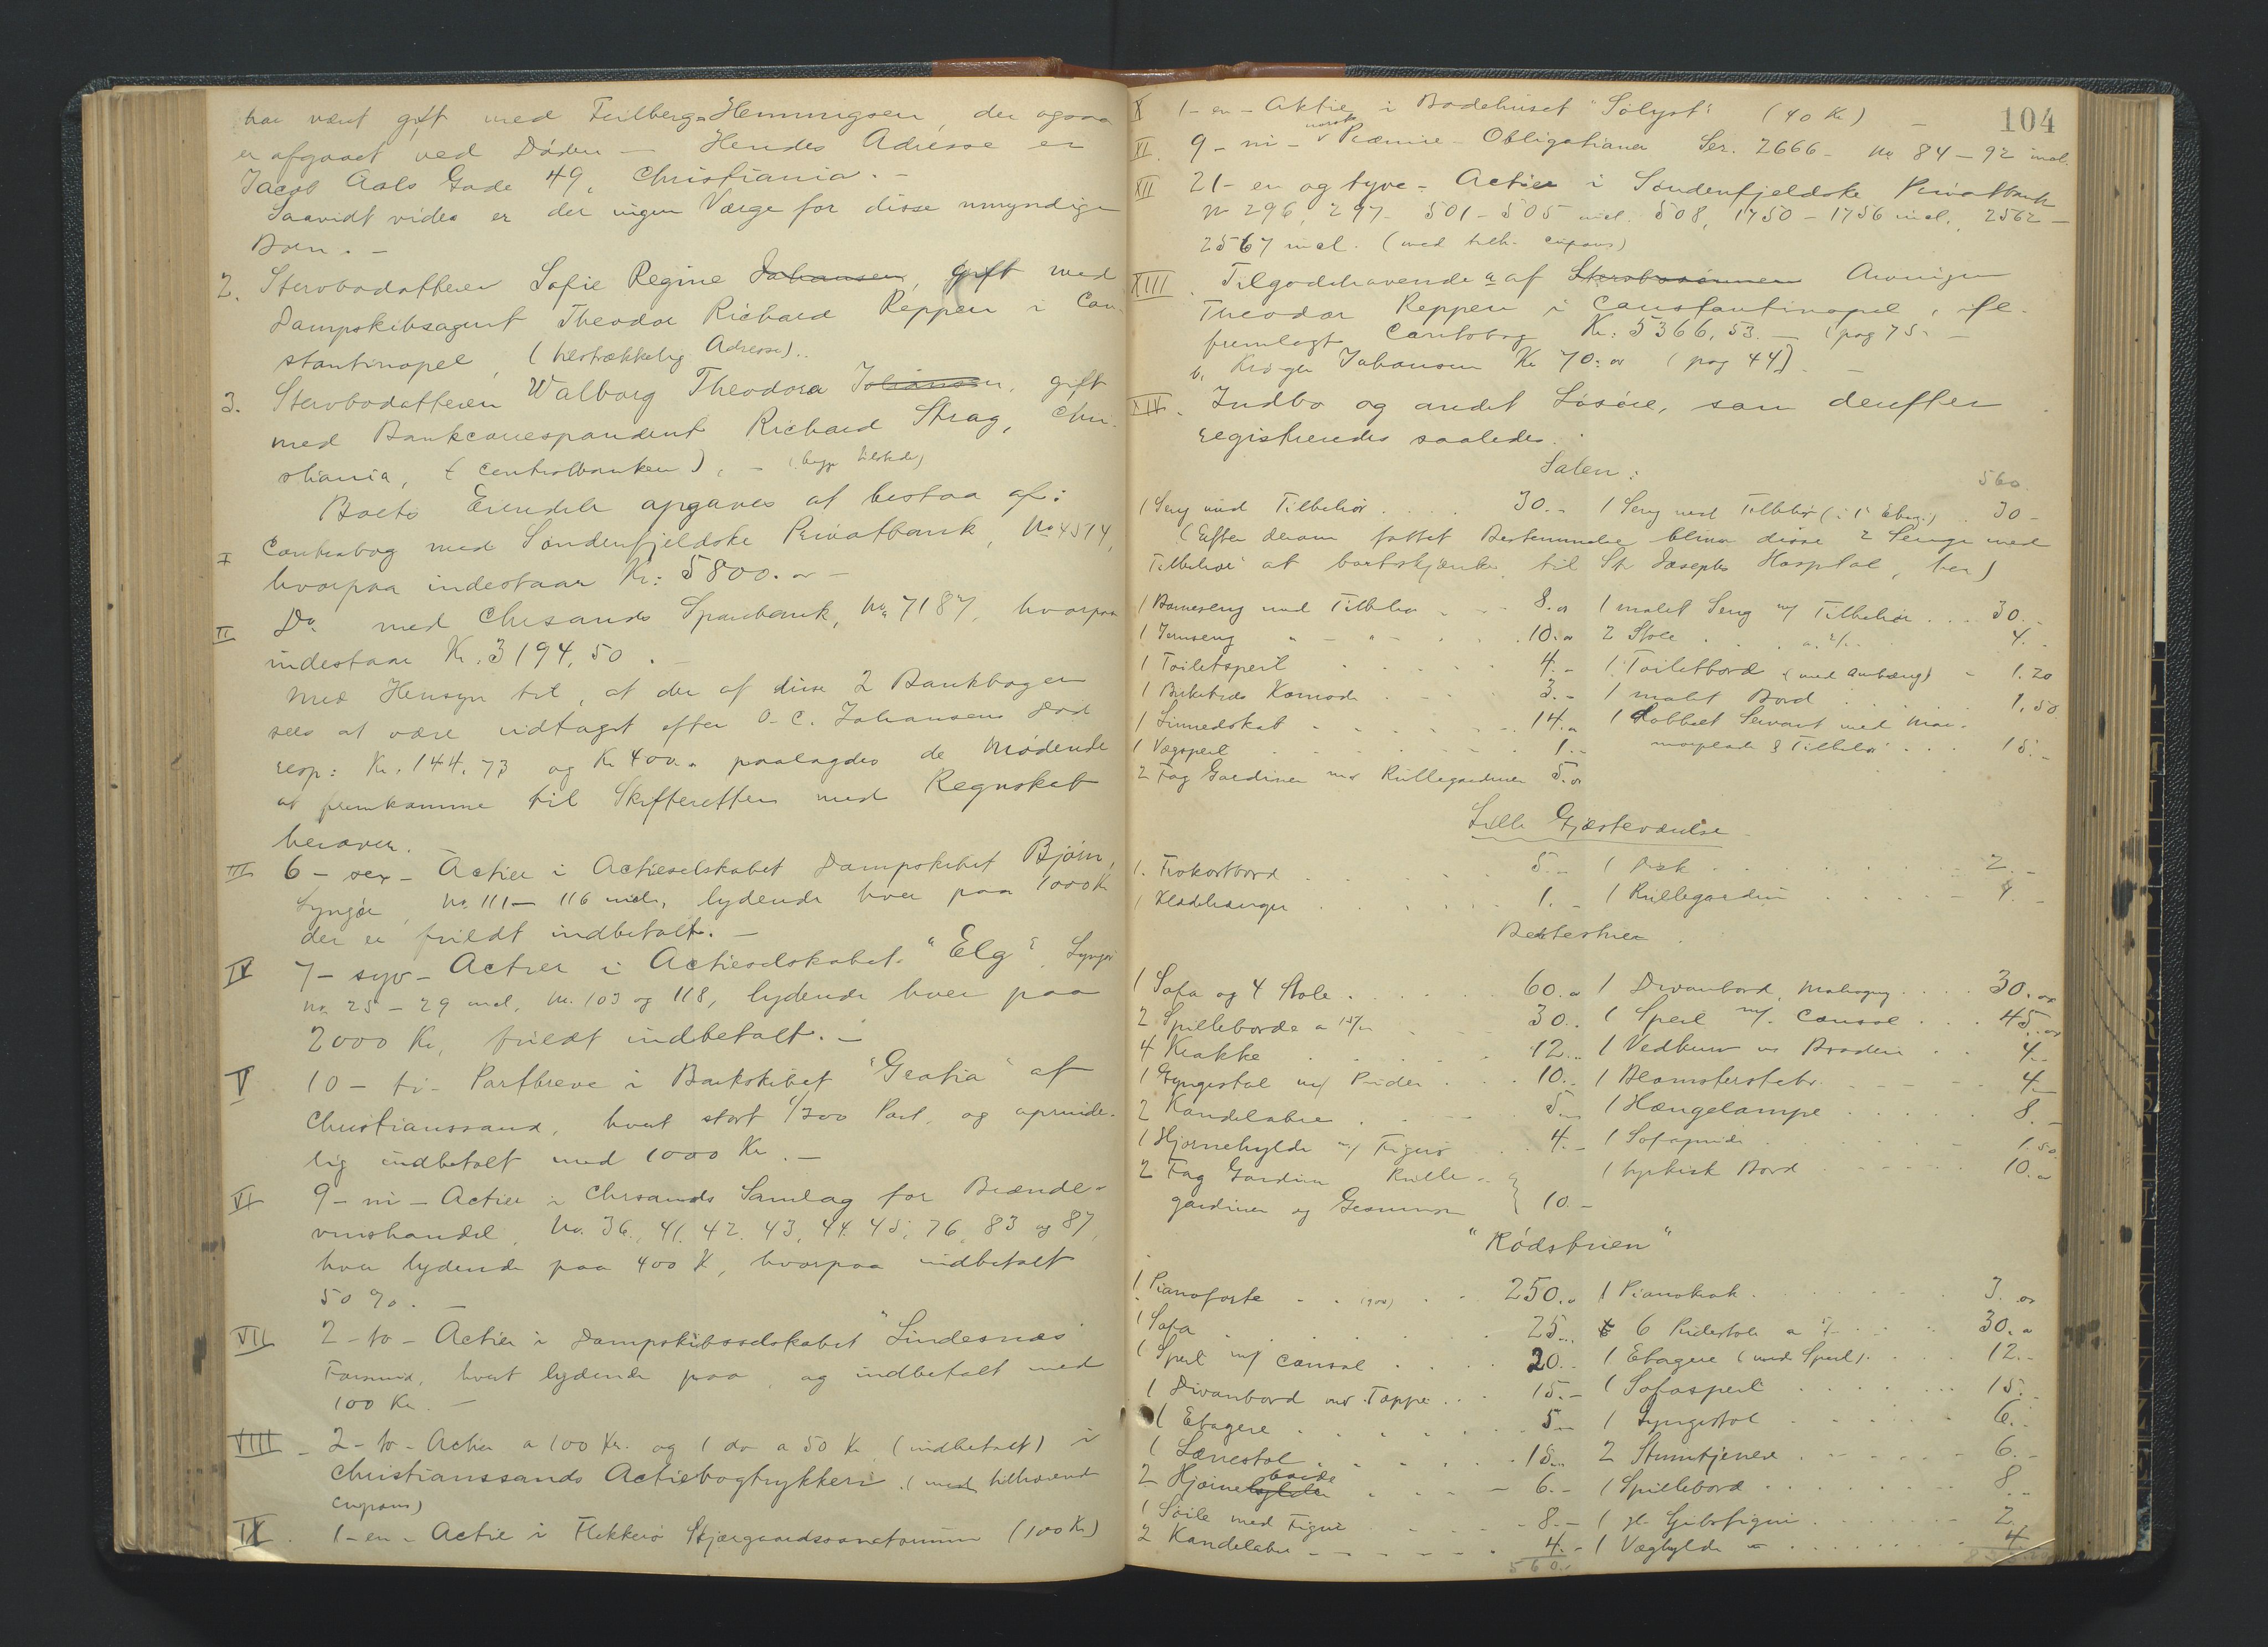 har været gift med Feilberg-Henningsen, der ogsaa
er afgaaet ved Døden — Hendes Adresse er
Jacob Aals Gade 49, Christiania. –
Saavidt vides er der ingen Værge for disse umyndige
Børn. –
2. Stervbodatteren Sofie Regine Johansen, gift med
Dampskibsagent Theodor Richard Reppen i Con-
stantinopel, (tilstrækkelig Adresse).
3. Stervbodatteren Walborg Theodora Johansen, gift
med Bankcorrespondent Richard Strag, Chri-
stiania, (Centralbanken), – (begge tilstede)
Boets Eiendele opgaves at bestaa af:
I Contrabog med Søndenfjeldske Privatbank, No 4574,
hvorpaa indestaar Kr: 5800. –
II Do med Chrsands Sparebank, No 7187, hvorpaa
indestaar Kr. 3194,50. –
Med Hensyn til, at der af disse 2 Bankbøger
sees at være udtaget efter O. C. Johansens Død
resp: Kr. 144,73 og Kr 400. paalagdes de Mødende
at fremkomme til Skifteretten med Regnskab
herover. –
III 6 – sex – Actier i Actieselskabet Dampskibet Bjørn,
Lyngør, No 111 – 116 incl., lydende hver paa 1000 Kr
der er fuldt indbetalt. –
IV 7 – syv – Actier i Actieselskabet "Elg", Lyngør
No 25 – 29 incl, No. 103 og 118, lydende hver paa
2000 Kr, fuldt indbetalt. –
V 10 – ti – Partbreve i Barkskibet "Gratia" af
Christianssand, hvert stort 1/200 Part, og oprinde-
lig indbetalt med 1000 Kr. –
VI 9 – ni – Actier i Chrsands Samlag for Brænde-
vinshandel, No. 36, 41. 42. 43, 44. 45, 76, 83 og 87,
hver lydende paa 400 K, hvorpaa indbetalt
50 %. –
VII 2 – to – Actier i Dampskibsselskabet "Lindesnæs"
Farsund, hvert lydende paa, og indbetalt med
100 Kr. –
VIII – 2 – to – Actier a 100 Kr. og 1 do a 50 Kr (indbetalt) i
Christianssands Actiebogtrykkeri. (med tilhørende
cupons)
IX. 1 – en – Actie i Flekkerø Skjærgaardssanatorium (100 Kr)
104
X 1 – en – Aktie i Badehuset "Solyst" (40 Kr) –
XI. 9 – ni – norske Præmie – Obligationer Ser. 2666 – No 84 – 92 incl.
XII 21 – en og tyve – Actier i Søndenfjeldske Privatbank
No 296, 297. 501 – 505 incl. 508, 1750 – 1756 incl., 2562 –
2567 incl. (med tilh. cupons)
XIII. Tilgodehavende a af Stervbosønnen Arvingen
Theodor Reppen i Constantinopel, ifl.
fremlagt Contobog Kr: 5366,53. – (pag 75. –
b, Krøger Johansen Kr 70: (pag 44). –
XIV. Indbo og andet Løsøre, som derefter
registreredes saaledes:
Salen:
560
1 Seng med Tilbehør . . . 30.– 1 Seng med Tilbehør (i 1 Etage) . . 30 –
(Efter derom fattet Bestemmelse bliver disse 2 Senge med
Tilbehør at bortskjænke til St Josephs Hospital, her)
1 Barneseng med Tilbehør . . 8. 1 malet Seng m/ Tilbehør . . . 30. –
1 Jernseng " – " – . . 10. 2 Stole . . a. 2/. . 4. –
1 Toiletspeil . . . . 4. – 1 Toiletbord (med Omhæng) – 1.20
1 Birketræs Komode . . . 3. – 1 malt Bord . . . 1,50
1 Linnedskab . . . . 14. 1 dobbelt Servant med Mar-
1 Vægspeil . . . . 1. – morplade & Tilbehør . . . 15. –
2 Fag Gardiner med Rullegardiner 5.
Lille Gjæsteværelse
1. Frokostbord . . . . 5. – 1 Pisk . . . . 2. –
1 Klædehænger . . . . 1. – 1 Rullegardin . . . . 4. –
Bedstestuen.
1 Sofa og 4 Stole . . . . 60. 1 Divanbord, Mahogny . . . 30.
2 Spilleborde a 15/ . . 30. . 1 Speil m/. Consol . . . 45.
4 Krakke . . . . 12. . 1 Vedkurv m Broderi . . 4. –
1 Gyngestol m/ Puder . . . 10. . 1 Blomsterstativ . . . . 4. –
2 Kandelabre . . . . 5. 1 Hængelampe . . . . 8. –
1 Hjørnehylde m/ Figur . . . 4. – 1 Sofapude . . . . 1.50
2 Fag Gardin Rulle- 1 tyrkisk Bord . . . . 10.
gardiner og Gesimser } 10. –
"Rødstuen"
1 Pianoforte . . (900) . . 250. 1 Pianokrak . . . . 3.
1 Sofa . . . . 25. 6 Pudestole a 5/. . . 30.
1 Speil m/ Consol . . . . 20. – 1 Etagere (med Speil). . . . 12. –
1 Divanbord med Tæppe . . . 15. – 1 Sofaspeil . . . . 15. –
1 Etagere . . . . 5. 1 Gyngestol . . . . 6. –
1 Lænestol . . . . 15. 2 Stumtjenere . . . . 6. –
2 Hjørnehylder borde . . . . 6. – 1 Spillebord . . . . 8. –
1 Søile med Figur . . . . 8. – 1 gl. Gibsfigur . . . . 2. –
2 Kandelabre . . . . 4. – 1 Væghylde . . . . 4
560. –